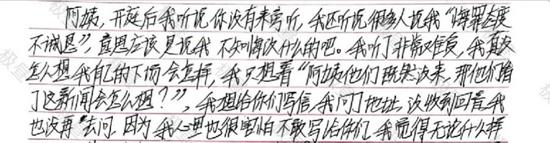 阿姨,开庭后我听说你没有来旁听,我还听说很多人说我“悔罪态度
不诚恳”,意思应该是说我不知悔改什么的吧。我听了非常难受,我真没
怎么想我自己的下场会怎样,我只想着“阿姨他们既然没来,那他们看
了这新闻会怎么想?”,我想给你们写信,我问了地址,没收到回音我
也没再去问,因为我心里也很害怕不敢写给你们,我觉得无论什么样